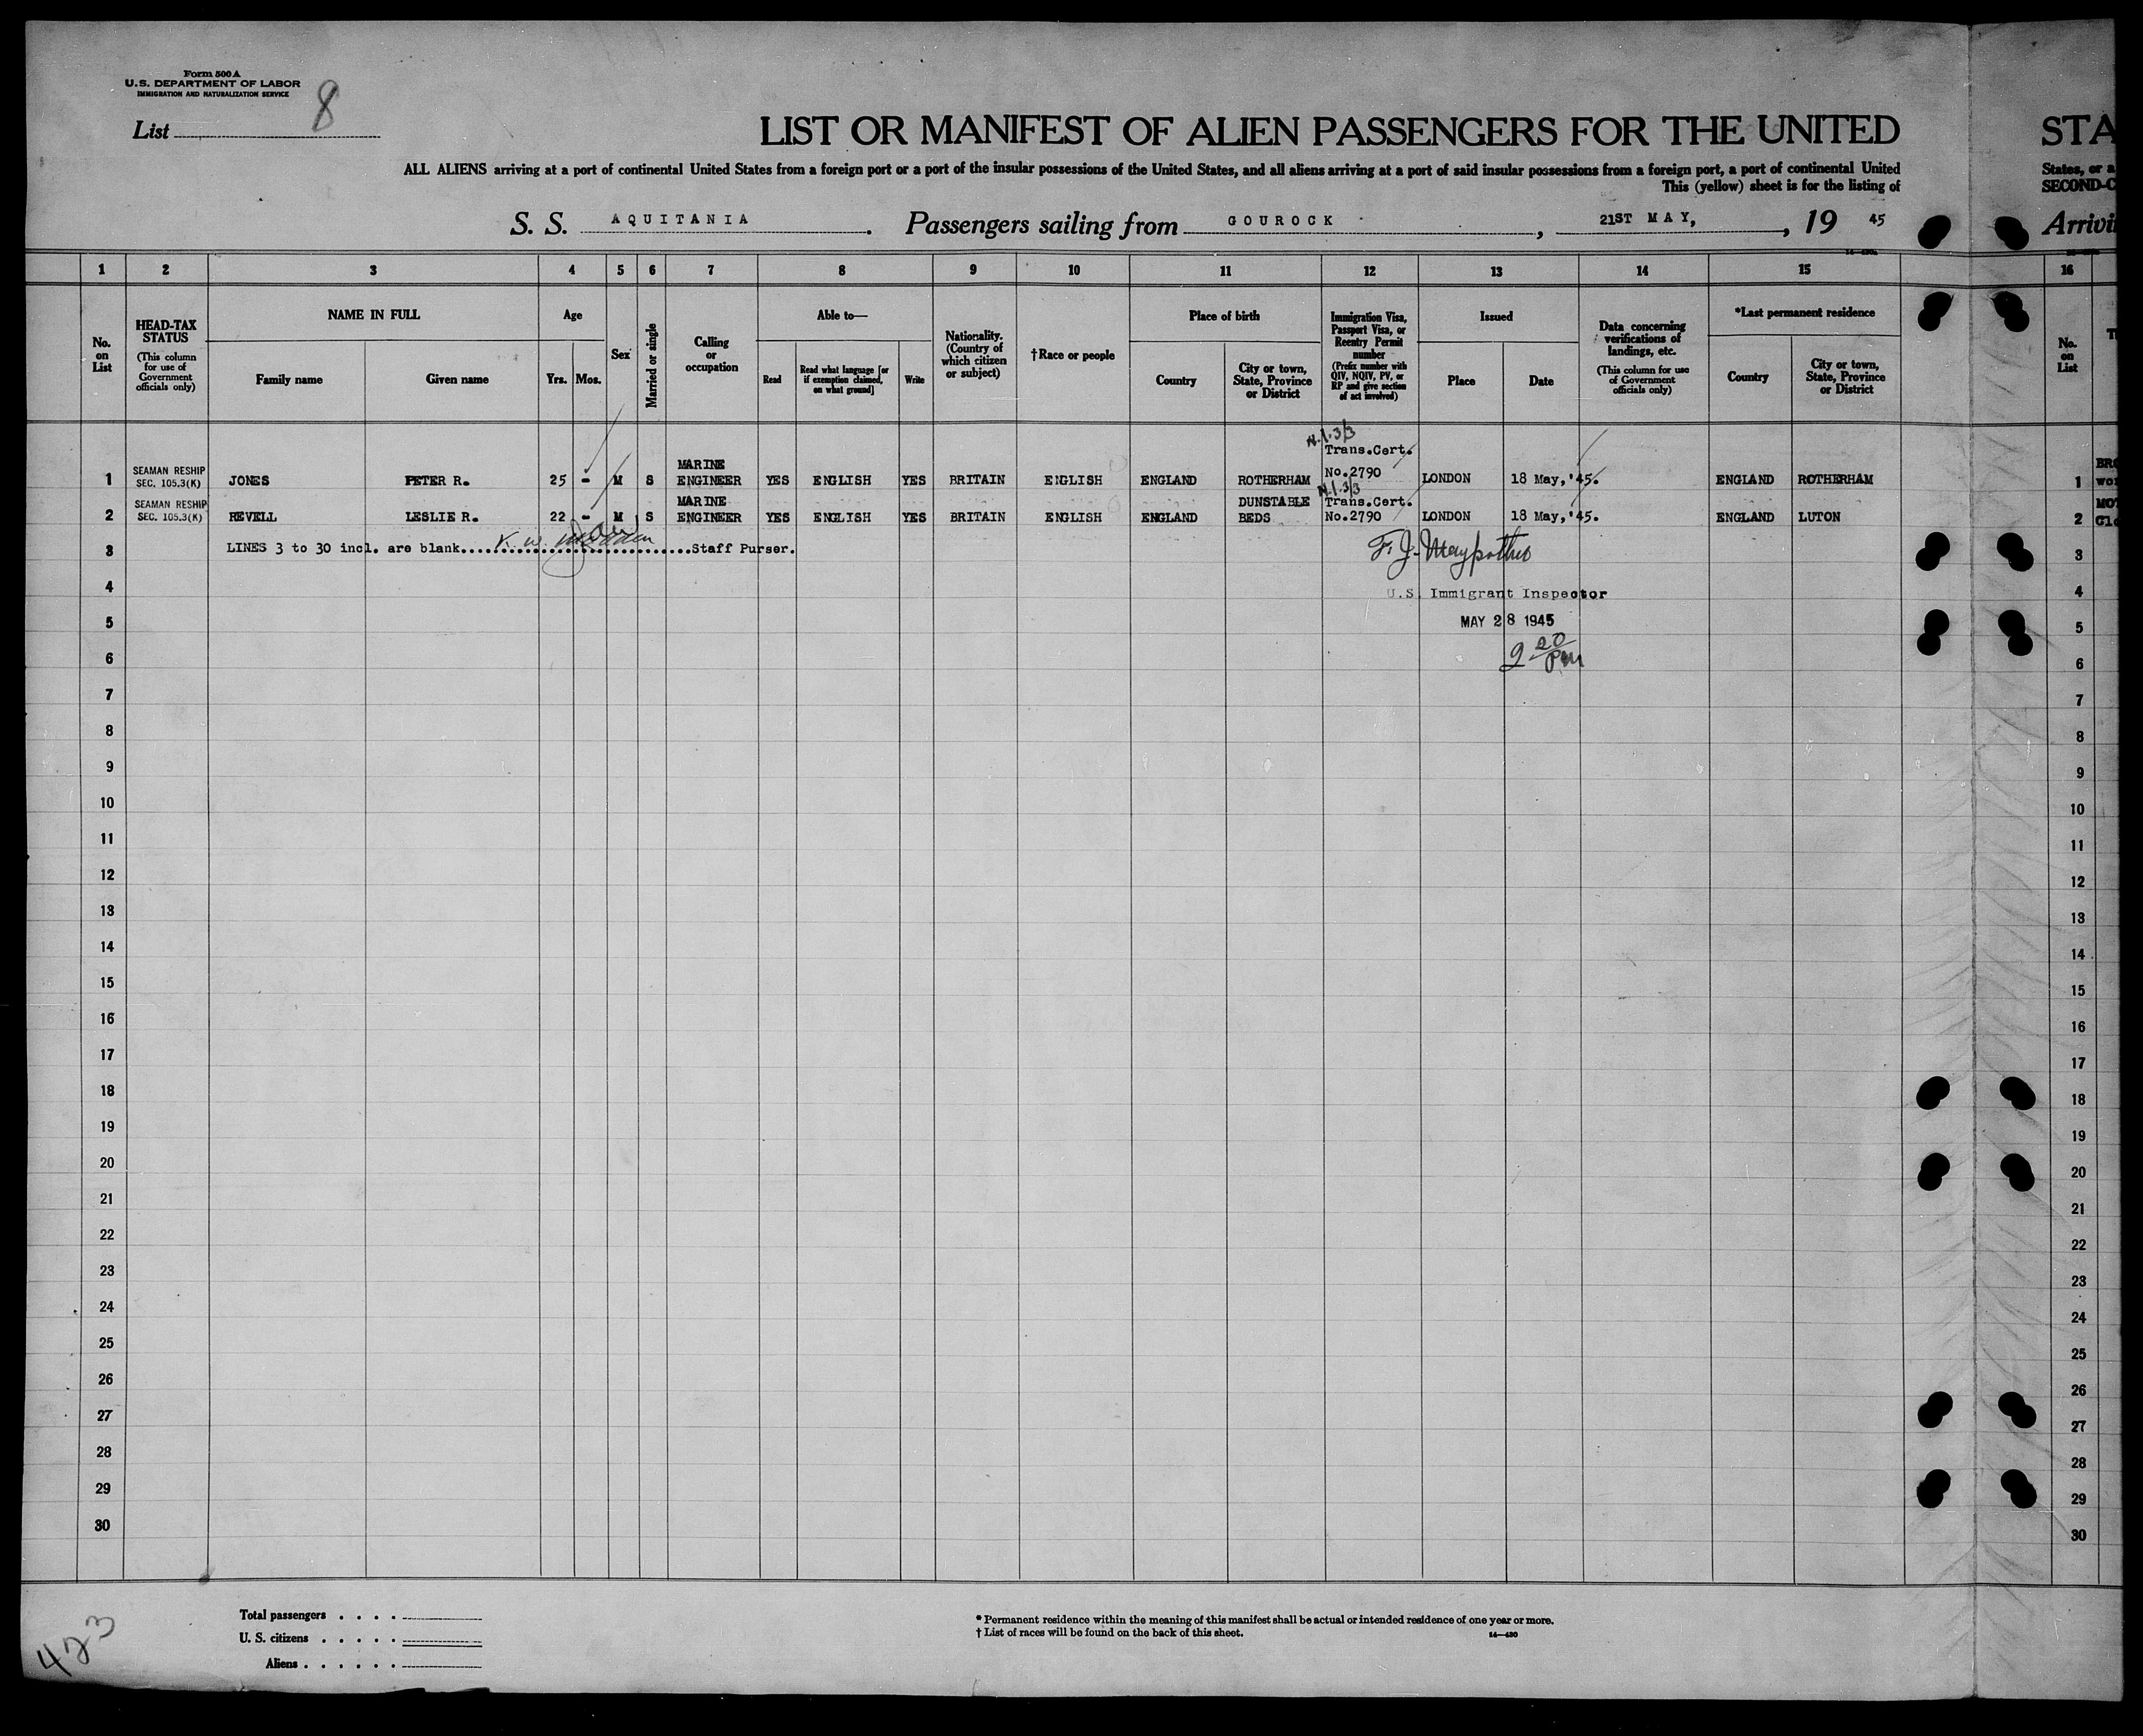 Form 500 A
U.S. DEPARTMENT OF LABOR
IMMIGRATION AND NATURALIZATION SERVICE
List 8
LIST OR MANIFEST OF ALIEN PASSENGERS FOR THE UNITED STA
ALL ALIENS arriving at a port of continental United States from a foreign port or a port of the insular possessions of the United States, and all aliens arriving at a port of said insular possessions from a foreign port, a port of continental United States, or a
This (yellow) sheet is for the listing of SECOND-C
S. S. AQUITANIA. Passengers sailing from GOUROCK, 21ST MAY, 19 45 Arrivi
1 2 3 4 5 6 7 8 9 10 11 12 13 14 15 16
No. on List
HEAD-TAX STATUS (This column for use of Government officials only)
NAME IN FULL
Family name
Given name
Age
Yrs. Mos.
Sex
Married or single
Calling or occupation
Able to—
Read
Read what language [or if exemption claimed, on what ground]
Write
Nationality. (Country of which citizen or subject)
†Race or people
Place of birth
Country
City or town, State, Province or District
Immigration Visa, Passport Visa, or Reentry Permit number (Prefix number with QIV, NQIV, PV, or RP and give section of act involved)
Issued
Place
Date
Data concerning verifications of landings, etc. (This column for use of Government officials only)
*Last permanent residence
Country
City or town, State, Province or District
No. on List
N.I. 3/3
SEAMAN RESHIP MARINE Trans.Cert.
1 SEC. 105.3(K) JONES PETER R. 25 - M S ENGINEER YES ENGLISH YES BRITAIN ENGLISH ENGLAND ROTHERHAM No.2790 LONDON 18 May,'45. ENGLAND ROTHERHAM 1
N.I. 3/3
SEAMAN RESHIP MARINE DUNSTABLE Trans.Cert.
2 SEC. 105.3(K) REVELL LESLIE R. 22 - M S ENGINEER YES ENGLISH YES BRITAIN ENGLISH ENGLAND BEDS No.2790 LONDON 18 May,'45. ENGLAND LUTON 2
3 LINES 3 to 30 incl. are blank. K. W. Staff Purser. F. J. 3
4 U.S. Immigrant Inspector 4
5 MAY 28 1945 5
6 2 20 PM 6
7 7
8 8
9 9
10 10
11 11
12 12
13 13
14 14
15 15
16 16
17 17
18 18
19 19
20 20
21 21
22 22
23 23
24 24
25 25
26 26
27 27
28 28
29 29
30 30
Total passengers
U. S. citizens
Aliens
* Permanent residence within the meaning of this manifest shall be actual or intended residence of one year or more.
† List of races will be found on the back of this sheet. 14—430
423